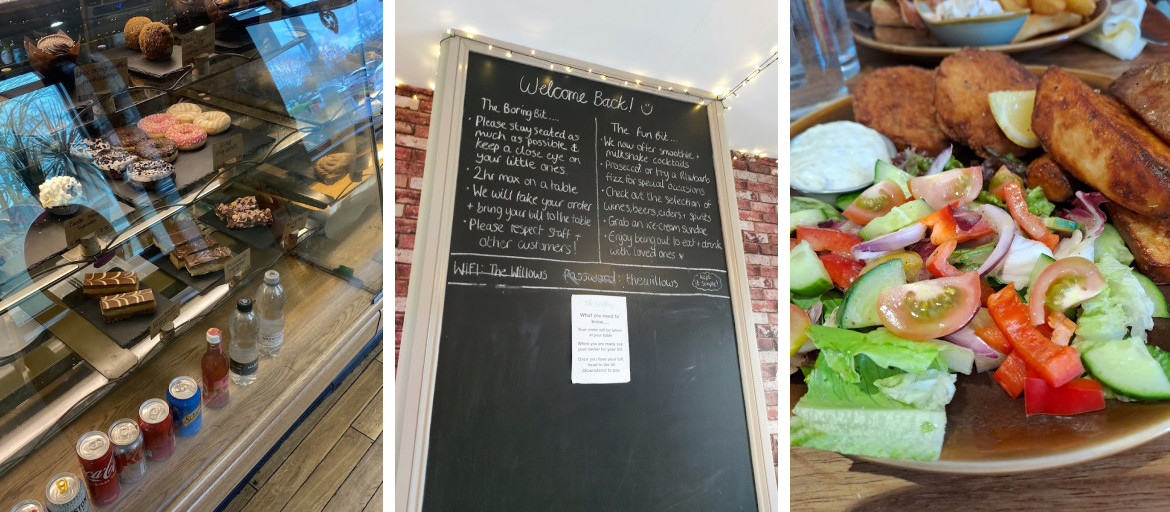 Welcome Back! ☺
The Boring Bit....
• Please stay seated as
much as possible &
keep a close eye on
your little ones.
• 2hr max on a table
• We will take your order
+ bring your bill to the table
• Please respect staff +
other customers!
The Fun Bit....
• We now offer smoothie +
milkshake cocktails
• Prosecco or try a Rhubarb
fizz for special occasions
• Check out the selection of
wines, beers, ciders + spirits
• Grab an ice-cream sundae
• Enjoy being out to eat + drink
with loved ones
WIFI: The Willows Password: thewillows
kept
it simple!
What you need to
know....
Your order will be taken
at your table
Once you have your bill,
head to the till
to pay
Coca